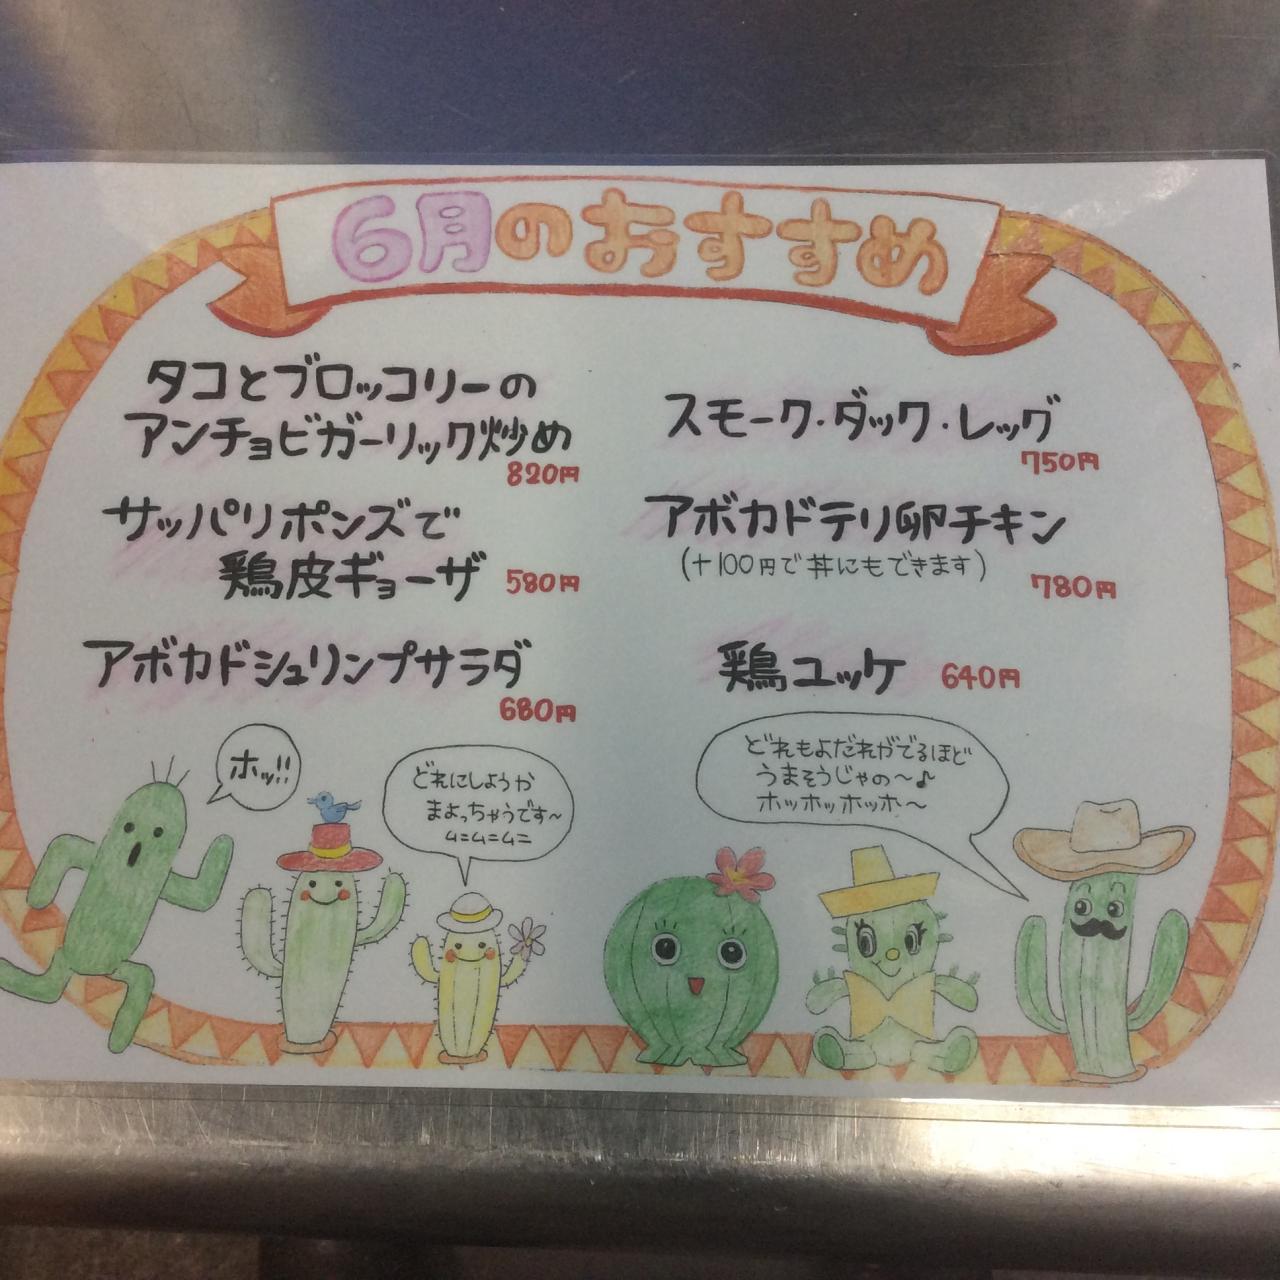 6月のおすすめ
タコとブロッコリーの
アンチョビガーリック炒め
820円
サッパリポンズで
鶏皮ギョーザ 580円
アボカドシュリンプサラダ
680円
スモーク・ダック・レッグ
750円
アボカドテリ卵チキン
(+100円で丼にもできます)
780円
鶏ユッケ 640円
ホッ!!
どれにしようか
まよっちゃうです~
ムニムニムニ
どれもよだれがでるほど
うまそうじゃの~♪
ホッホッホッホ~